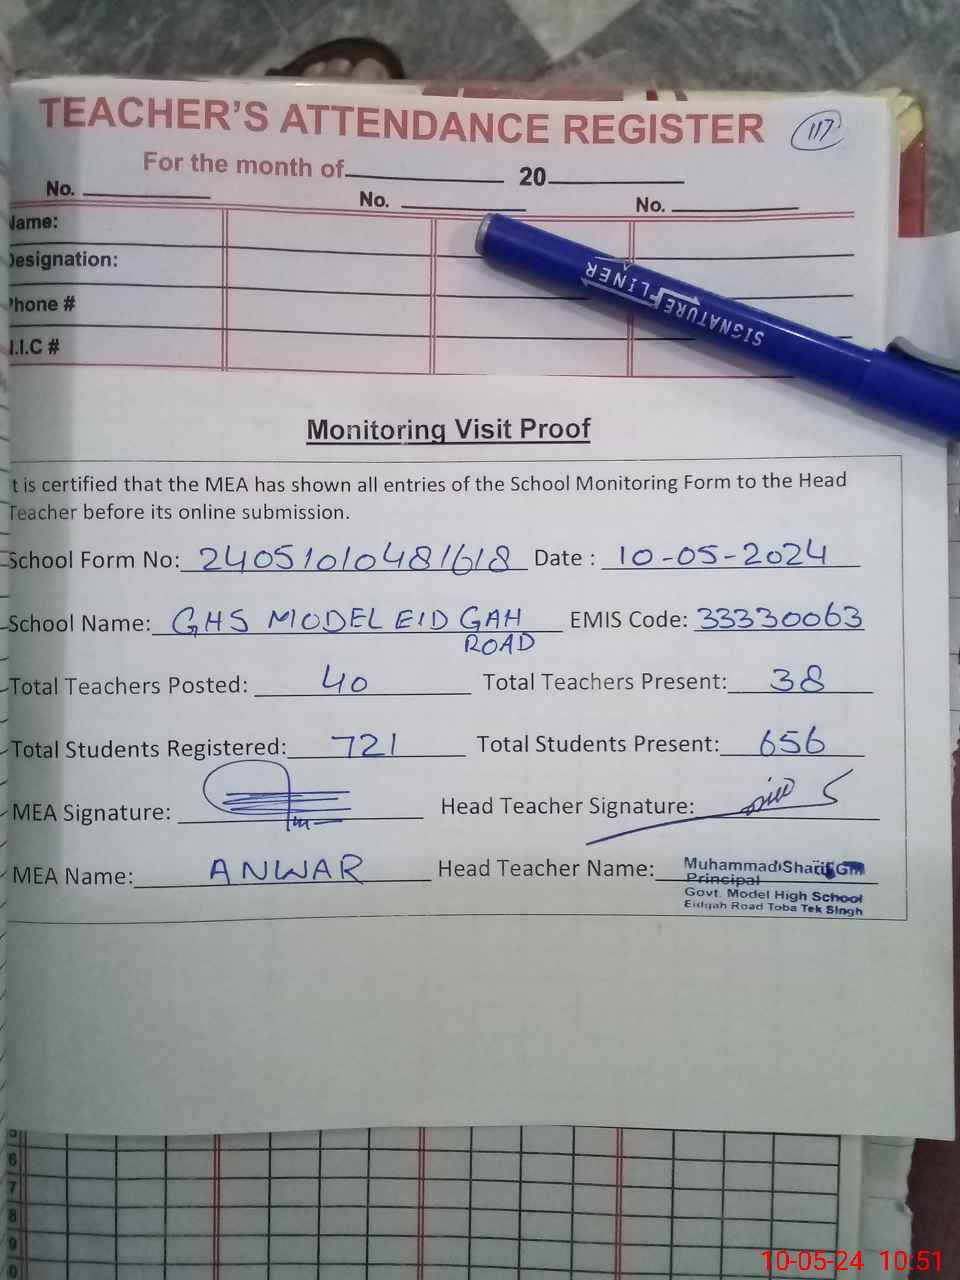 TEACHER'S ATTENDANCE REGISTER
117
For the month of 20
No. No. No.
Name:
Designation:
Phone #
N.I.C #
SIGNATURE FLINER
Monitoring Visit Proof
It is certified that the MEA has shown all entries of the School Monitoring Form to the Head
Teacher before its online submission.
School Form No: 24051010481618 Date : 10-05-2024
School Name: GHS MODEL EID GAH ROAD EMIS Code: 33330063
Total Teachers Posted: 40 Total Teachers Present: 38
Total Students Registered: 721 Total Students Present: 656
MEA Signature: Head Teacher Signature:
MEA Name: ANWAR Head Teacher Name: Muhammad Sharif
Principal
Govt. Model High School
Eidgah Road Toba Tek Singh
6
7
8
9
10-05-24 10:51